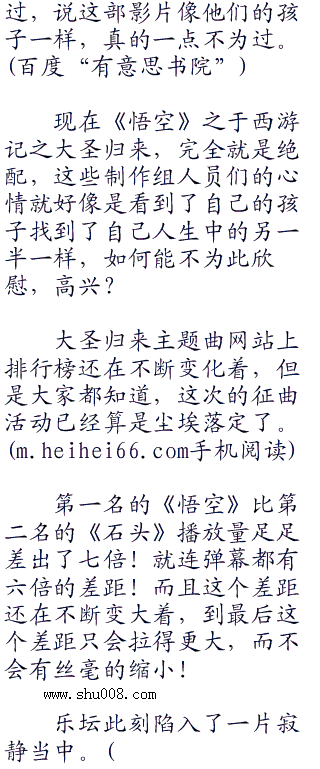 过，说这部影片像他们的孩
子一样，真的一点不为过。
(百度“有意思书院”)
现在《悟空》之于西游
记之大圣归来，完全就是绝
配，这些制作组人员们的心
情就好像是看到了自己的孩
子找到了自己人生中的另一
半一样，如何能不为此欣
慰，高兴？
大圣归来主题曲网站上
排行榜还在不断变化着，但
是大家都知道，这次的征曲
活动已经算是尘埃落定了。
(m.heihei66.com手机阅读)
第一名的《悟空》比第
二名的《石头》播放量足足
差出了七倍！就连弹幕都有
六倍的差距！而且这个差距
还在不断变大着，到最后这
个差距只会拉得更大，而不
会有丝毫的缩小！
www.shu008.com
乐坛此刻陷入了一片寂
静当中。(